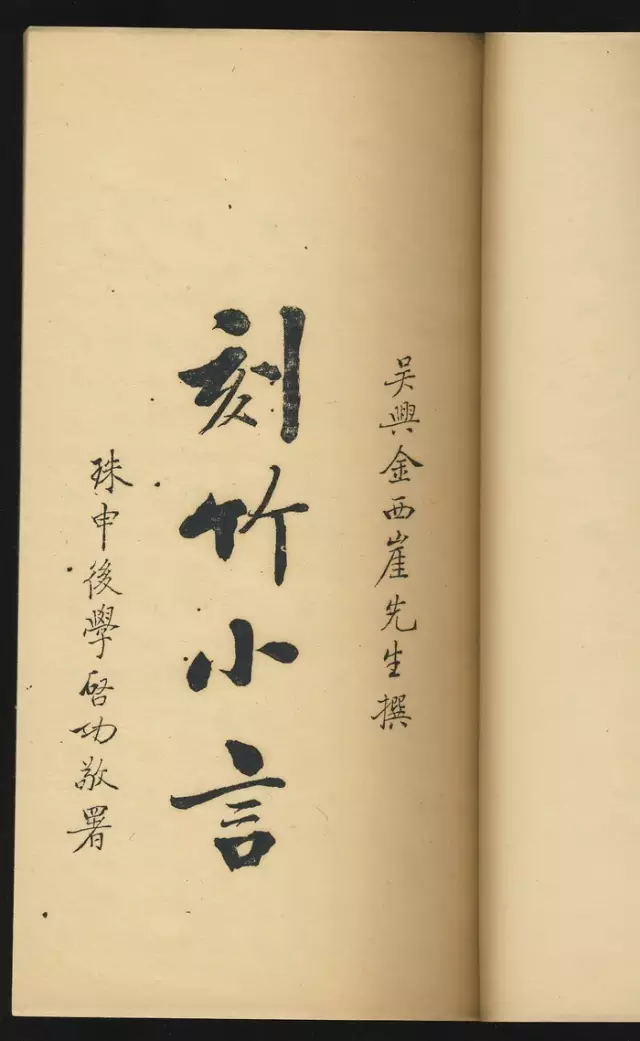 吴興金西厓先生撰
刻竹小言
珠申後學啓功敬署